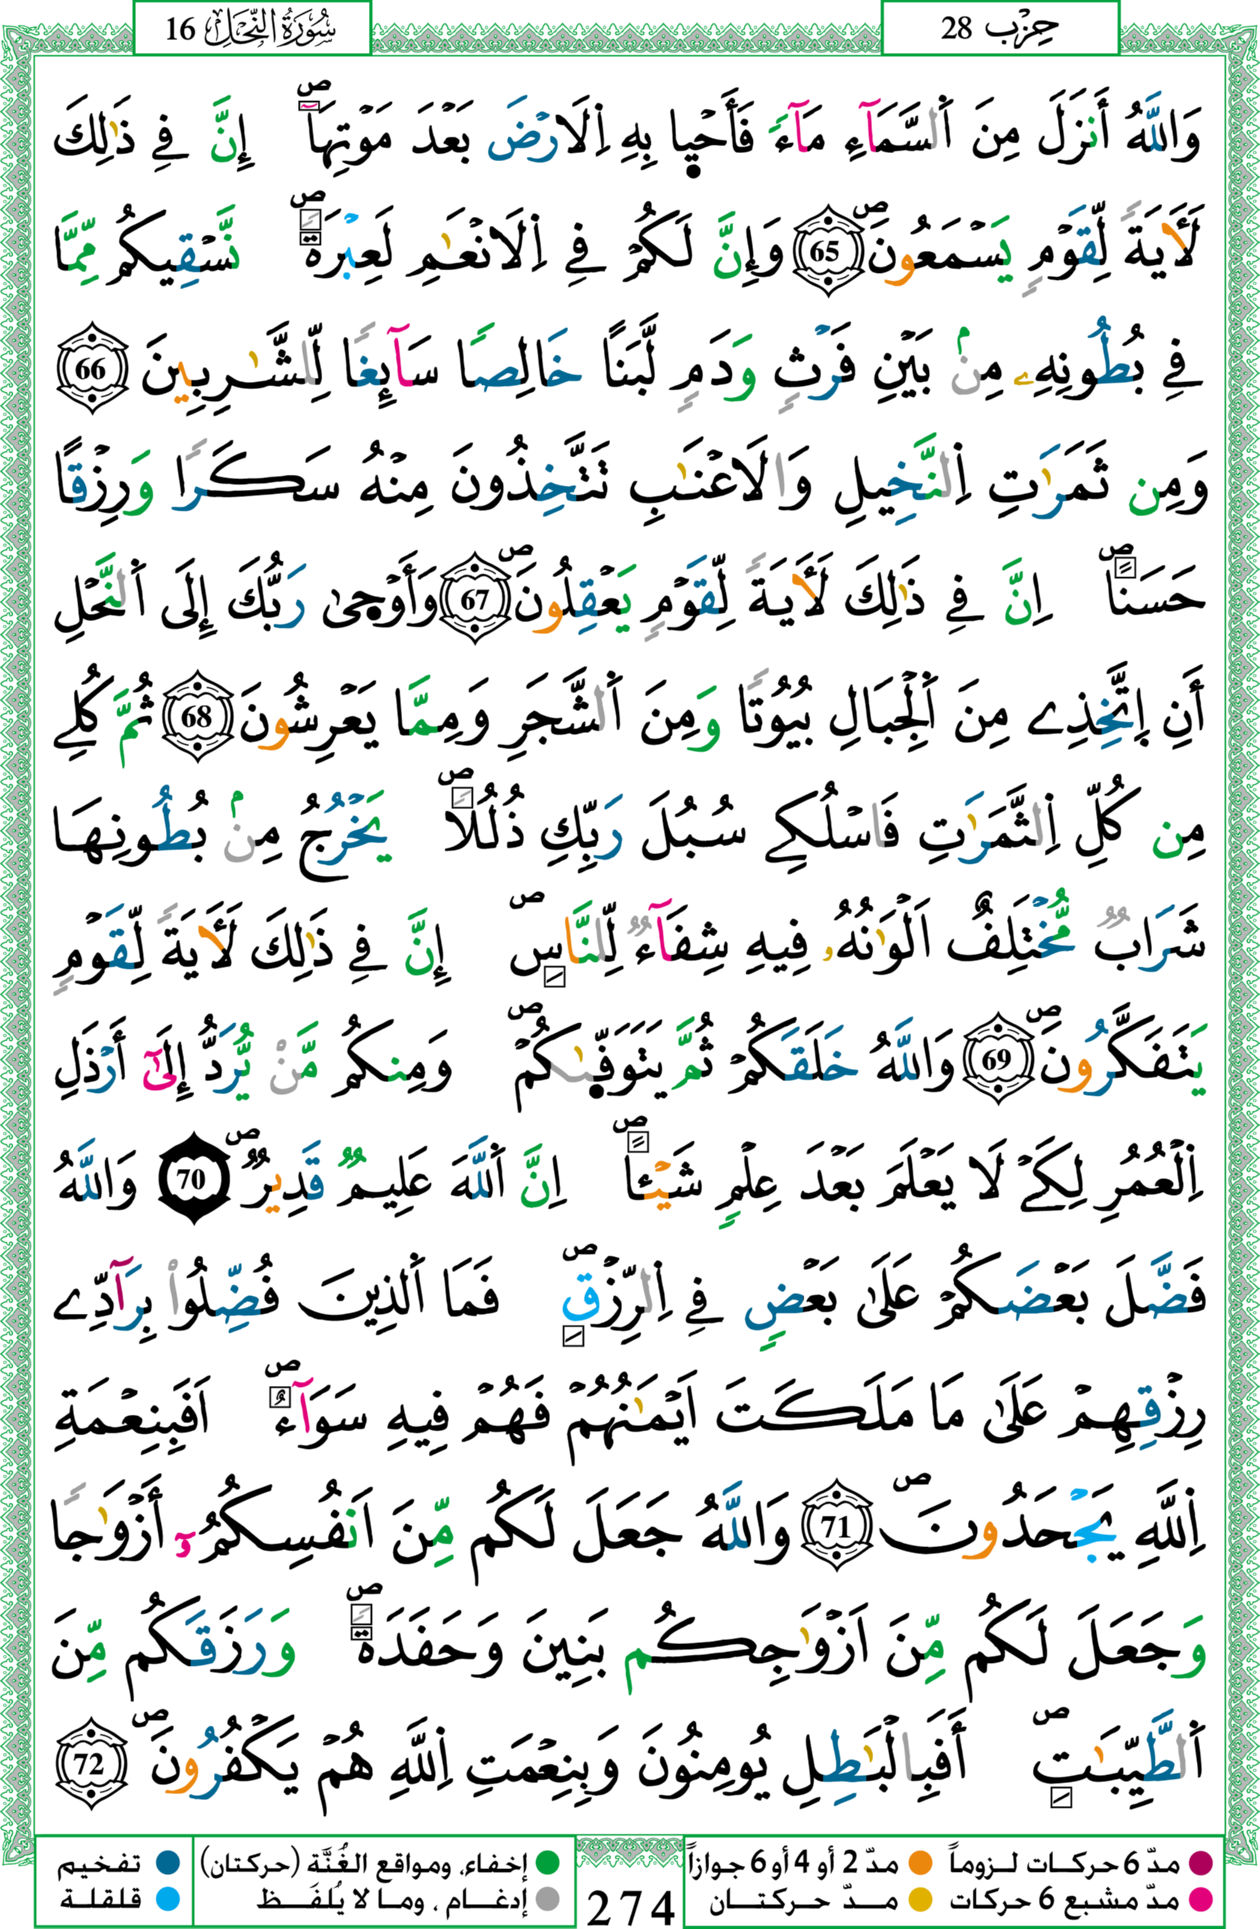 حِزْب 28
سُورَةُ النَّحْلِ 16
وَاللَّهُ أَنزَلَ مِنَ اَ۬لسَّمَآءِ مَآءٗ فَأَحْي۪ا بِهِ اِ۬لَارْضَ بَعْدَ مَوْتِهَآۖ إِنَّ فِے ذَٰلِكَ
لَأٓيَةٗ لِّقَوْمٖ يَسْمَعُونَۖ 65 وَإِنَّ لَكُمْ فِے اِ۬لَانْعَٰمِ لَعِبْرَةٗۖ نَّسْقِيكُم مِّمَّا
فِے بُطُونِهِۦ مِنۢ بَيْنِ فَرْثٖ وَدَمٖ لَّبَناً خَالِصاٗ سَآئِغاٗ لِّلشَّٰرِبِينَ 66
وَمِن ثَمَرَٰتِ اِ۬لنَّخِيلِ وَالَاعْنَٰبِ تَتَّخِذُونَ مِنْهُ سَكَراٗ وَرِزْقاً
حَسَناًۖ اِنَّ فِے ذَٰلِكَ لَأٓيَةٗ لِّقَوْمٖ يَعْقِلُونَۖ 67 وَأَوْح۪ىٰ رَبُّكَ إِلَى اَ۬لنَّحْلِ
أَنِ اِ۪تَّخِذِے مِنَ اَ۬لْجِبَالِ بُيُوتاٗ وَمِنَ اَ۬لشَّجَرِ وَمِمَّا يَعْرِشُونَ 68 ثُمَّ كُلِے
مِن كُلِّ اِ۬لثَّمَرَٰتِ فَاسْلُكِے سُبُلَ رَبِّكِ ذُلُلاٗۖ يَخْرُجُ مِنۢ بُطُونِهَا
شَرَابٞ مُّخْتَلِفٌ اَلْوَٰنُهُۥ فِيهِ شِفَآءٞ لِّلنَّاسِۖ إِنَّ فِے ذَٰلِكَ لَأٓيَةٗ لِّقَوْمٖ
يَتَفَكَّرُونَۖ 69 وَاللَّهُ خَلَقَكُمْ ثُمَّ يَتَوَفّ۪ىٰكُمْۖ وَمِنكُم مَّنْ يُّرَدُّ إِلَىٰٓ أَرْذَلِ
اِ۬لْعُمُرِ لِكَےْ لَا يَعْلَمَ بَعْدَ عِلْمٖ شَيْـٔاًۖ اِنَّ اَ۬للَّهَ عَلِيمٞ قَدِيرٞۖ 70 وَاللَّهُ
فَضَّلَ بَعْضَكُمْ عَلَىٰ بَعْضٖ فِے اِ۬لرِّزْقِۖ فَمَا اَ۬لذِينَ فُضِّلُواْ بِرَآدِّے
رِزْقِهِمْ عَلَىٰ مَا مَلَكَتَ اَيْمَٰنُهُمْ فَهُمْ فِيهِ سَوَآءٌۖ اَفَبِنِعْمَةِ
اِ۬للَّهِ يَجْحَدُونَۖ 71 وَاللَّهُ جَعَلَ لَكُم مِّنَ اَنفُسِكُمُۥٓ أَزْوَٰجاٗ
وَجَعَلَ لَكُم مِّنَ اَزْوَٰجِكُم بَنِينَ وَحَفَدَةٗۖ وَرَزَقَكُم مِّنَ
اَ۬لطَّيِّبَٰتِۖ أَفَبِالْبَٰطِلِ يُومِنُونَ وَبِنِعْمَتِ اِ۬للَّهِ هُمْ يَكْفُرُونَۖ 72
مدّ 6 حركات لـزوماً مدّ 2 أو 4 أو 6 جوازاً
مدّ مشبع 6 حركات مـدّ حركتــان
274
إخفاء، ومواقع الغُنَّة (حركتان) تفخيم
إدغــام ، ومـا لا يُلفَـظ قلقلـة